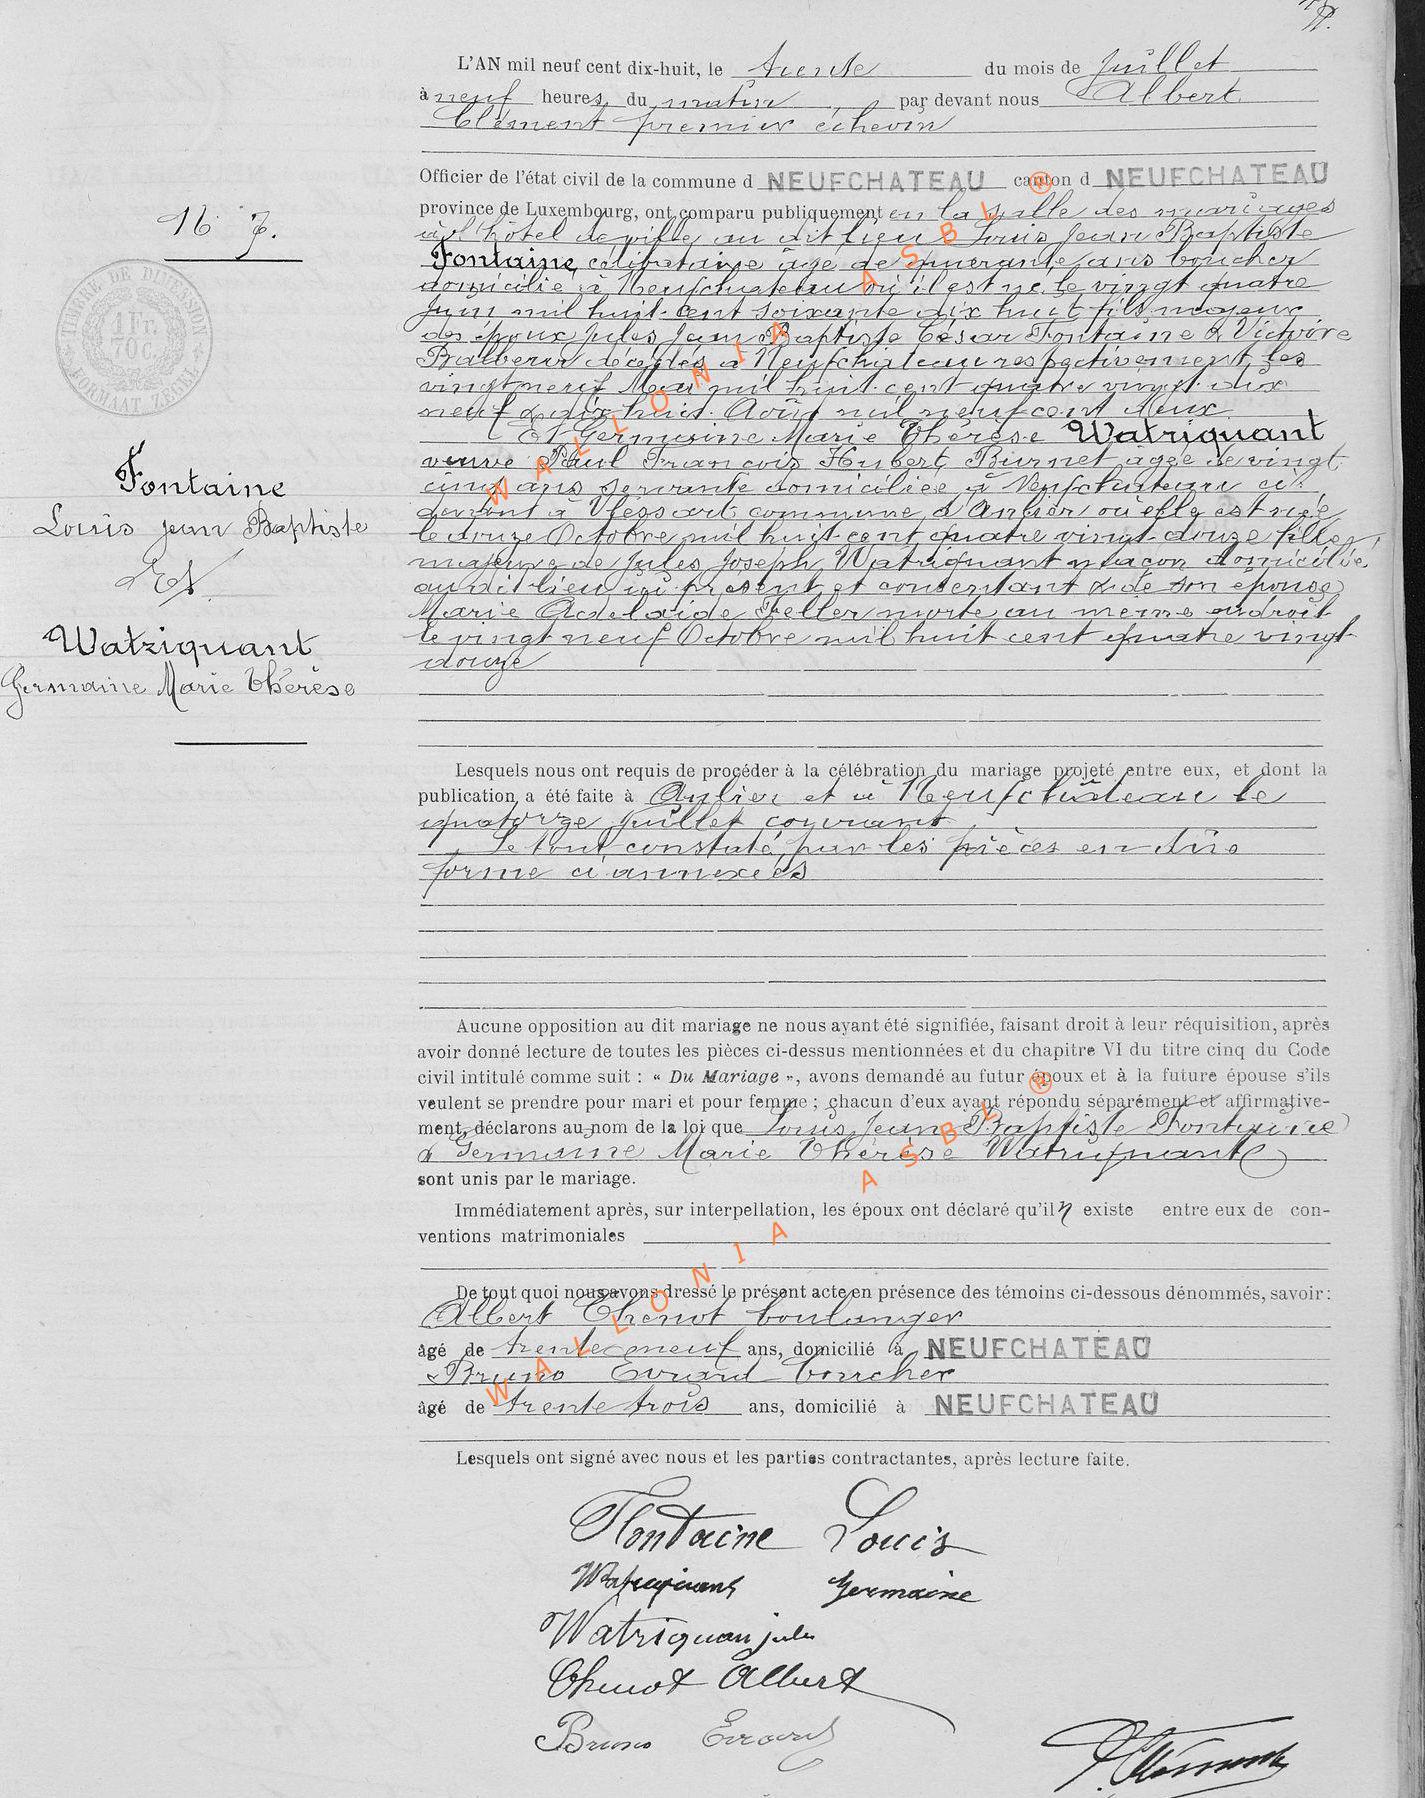 L'AN mil neuf cent dix-huit, le trente du mois de Juillet
à neuf heures du matin, par devant nous Albert
Clément premier échevin
Officier de l'état civil de la commune d NEUFCHATEAU canton d NEUFCHATEAU
province de Luxembourg, ont comparu publiquement en la salle des mariages
à l'hôtel de ville au dit lieu Louis Jean Baptiste
Fontaine, célibataire âgé de quarante ans boucher
domicilié à Neufchateau où il est né le vingt quatre
Juin mil huit cent soixante dix huit fils majeur
des époux Jules Jean Baptiste César Fontaine & Victoire
décédés à Neufchateau respectivement les
vingt neuf Mai mil huit cent quatre vingt dix
neuf & dix huit Août mil neuf cent deux
Et Germaine Marie Thérèse Watriquant
veuve Paul François Hubert Burnet âgée de vingt
cinq ans servante domiciliée à Neufchateau ci
devant à Vlessart commune d'Anlier où elle est née
le douze Octobre mil huit cent quatre vingt douze fille
majeure de Jules Joseph Watriquant maçon domicilié
au dit lieu ici présent et consentant & de son épouse
Marie Adelaïde Feller morte au même endroit
le vingt neuf Octobre mil huit cent quatre vingt
douze
16 J.
TIMBRE DE DIMENSION
1 Fr.
70 C.
FORMAAT ZEGEL
Fontaine
Louis Jean Baptiste
Et
Watriquant
Germaine Marie Thérèse
Lesquels nous ont requis de procéder à la célébration du mariage projeté entre eux, et dont la
publication a été faite à Anlier et à Neufchâteau le
quatorze Juillet courant
Le tout constaté par les pièces en due
forme ci annexées
Aucune opposition au dit mariage ne nous ayant été signifiée, faisant droit à leur réquisition, après
avoir donné lecture de toutes les pièces ci-dessus mentionnées et du chapitre VI du titre cinq du Code
civil intitulé comme suit : « Du Mariage », avons demandé au futur époux et à la future épouse s'ils
veulent se prendre pour mari et pour femme ; chacun d'eux ayant répondu séparément et affirmative-
ment, déclarons au nom de la loi que Louis Jean Baptiste Fontaine
& Germaine Marie Thérèse Watriquant
sont unis par le mariage.
Immédiatement après, sur interpellation, les époux ont déclaré qu'il n existe entre eux de con-
ventions matrimoniales
De tout quoi nous avons dressé le présent acte en présence des témoins ci-dessous dénommés, savoir :
Albert Thenot boulanger
âgé de trente neuf ans, domicilié à NEUFCHATEAU
& Bruno Evrard boucher
âgé de trente trois ans, domicilié à NEUFCHATEAU
Lesquels ont signé avec nous et les parties contractantes, après lecture faite.
Fontaine Louis
Watriquant Germaine
Watriquan jules
Thenot Albert
Bruno Evrard
A. Clément
WALLONIA ASBL ®
WALLONIA ASBL ®